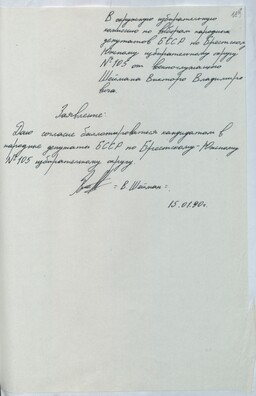 В окружную избирательную
комиссию по выборам народных
депутатов БССР по Брестскому-
Южному избирательному округу
№ 105 от военнослужащего
Шеймана Виктора Владимиро
вича.
Заявление.
Даю согласие баллотироваться кандидатом в
народные депутаты БССР по Брестскому-Южному
№ 105 избирательному округу.
= В. Шейман =
15.01.90г.